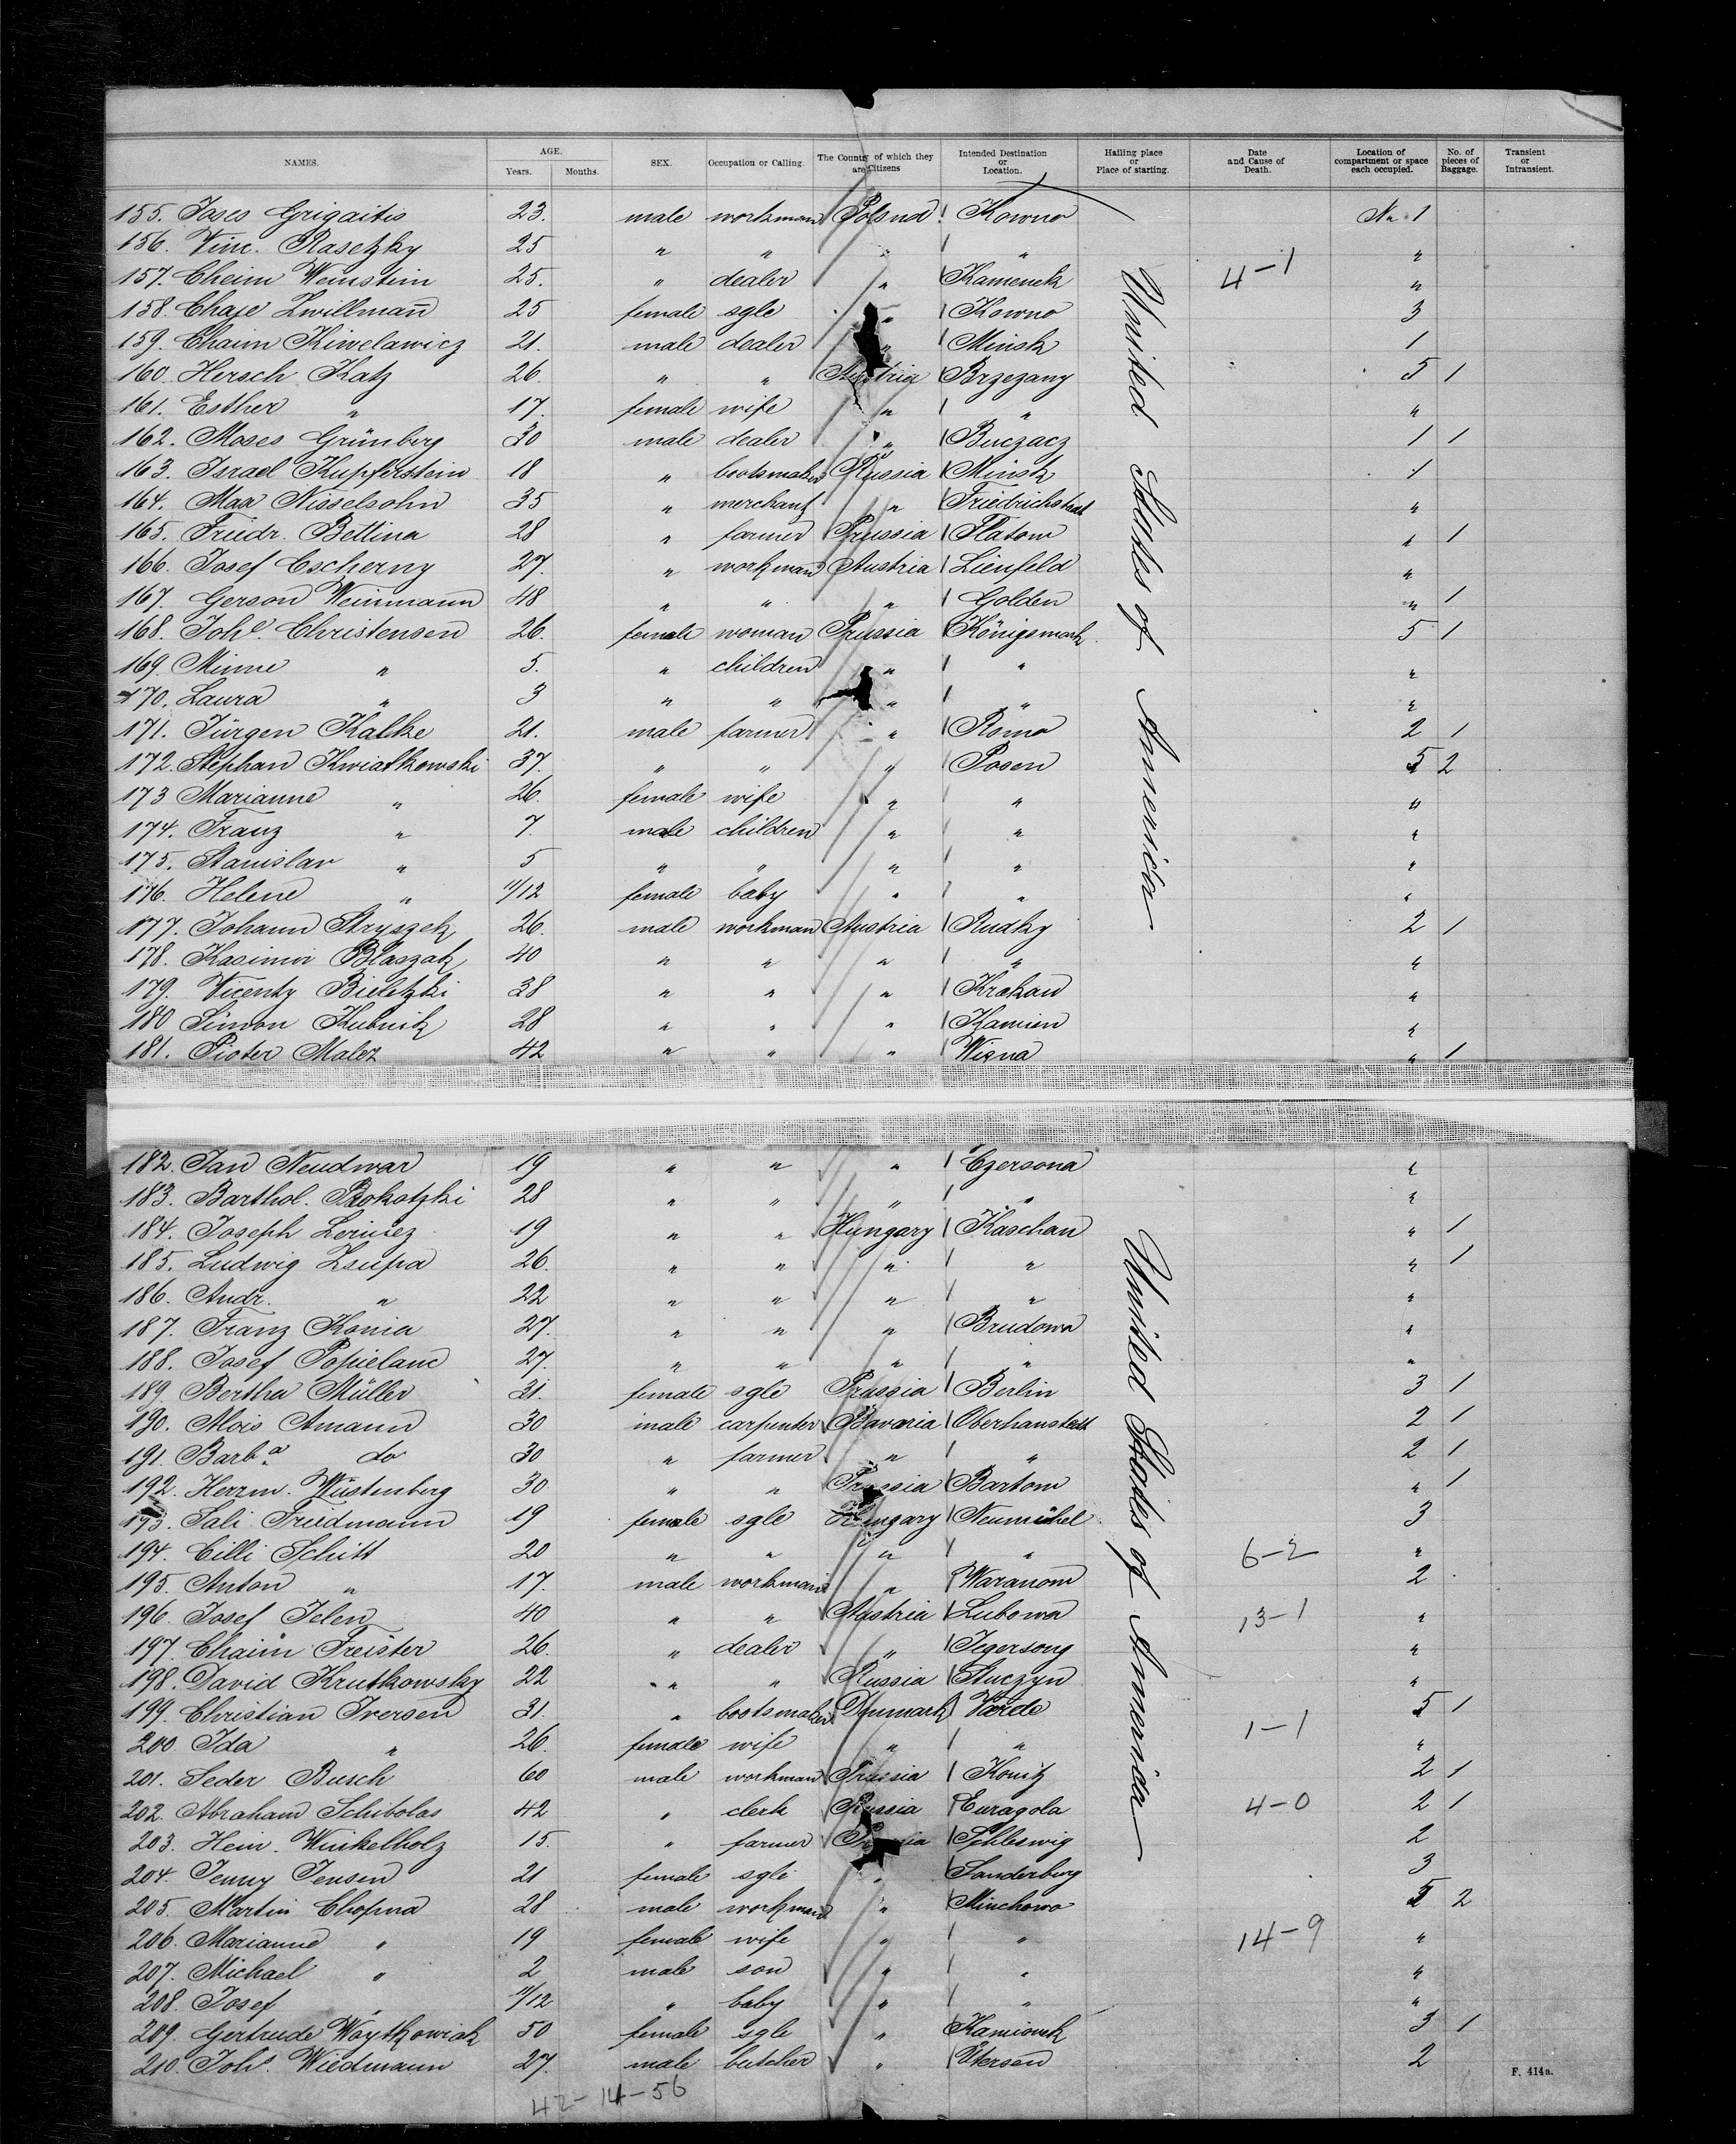 NAMES. AGE. Years. Months. SEX. Occupation or Calling. The Country of which they are Citizens Intended Destination or Location. Hailing place or Place of starting. Date and Cause of Death. Location of compartment or space each occupied. No. of pieces of Baggage. Transient or Intransient.
155. Joses Grigaitis 23. male workman Poland Kowno No 1
156. Vinc. Rasetzky 25 " " " " "
157. Cheim Weinstein 25. " dealer " Kamenek 4-1 "
158. Chaje Zwillmann 25 female sgle " Kowno 3
159. Chaim Kiwelawicz 21. male dealer " Minsk 1
160. Hersch Katz 26. " " Austria Brzezany 5 1
161. Esther " 17. female wife " " "
162. Moses Grünberg 30 male dealer " Buczacz 1 1
163. Israel Kupferstein 18 " bootsmaker Russia Minsk 1
164. Max Nisselsohn 35 " merchant " Friedrichstadt "
165. Friedr. Bettina 28 " farmer Prussia Flatow " 1
166. Josef Escherny 27. " workman Austria Lienfeld "
167. Gerson Weinmann 48 " " " Golden " 1
168. Johe. Christensen 26. female woman Prussia Königsmark 5 1
169. Minne " 5. " children " " "
170. Laura " 3 " " " " "
171. Jürgen Kalke 21. male farmer " Römo 2 1
172. Stephan Kwiatkowski 37. " " " Posen 5 2
173 Marianne " 26. female wife " " "
174. Franz " 7. male children " " "
175. Stanislav " 5 " " " " "
176. Helene " 11/12 female baby " " "
177. Johann Stryszek 26. male workman Austria Rudky 2 1
178. Kasimir Blaszak 40 " " " " "
179. Vicenty Bieletzki 38 " " " Krakau "
180 Simon Kubnik 28 " " " Kamien "
181. Pioter Malez 42 " " " Wisna " 1
182. Jan Neudwar 19 " " " Czersona "
183. Barthol. Prokotzki 28 " " " " "
184. Joseph Lerinez 19 " " Hungary Kaschau " 1
185. Ludwig Zsupa 26. " " " " " 1
186. Andr. " 22 " " " " "
187. Franz Konia 27. " " " Brudowa "
188. Josef Popielanc 27. " " " " "
189. Bertha Müller 31. female sgle Prussia Berlin 3 1
190. Alois Amann 30 male carpenter Bavaria Oberhanstett 2 1
191. Barba. do 30 " farmer " " 2 1
192. Herrm. Wüstenberg 30 " " Prussia Bartow " 1
193. Sali Friedmann 19 female sgle Hungary Neumichel 3
194. Cilli Schitt 20 " " " " 6-2 "
195. Anton " 17. male workman " Waranow 2
196. Josef Jelen 40 " " Austria Lubowa 13-1 "
197. Chaim Freister 26. " dealer " Jegersong "
198. David Krutkowsky 22 " " Russia Stuczyn "
199. Christian Iversen 31. " bootsmaker Denmark Varde 5 1
200 Ida " 26. female wife " " 1-1 "
201. Seder Busch 60 male workman Prussia Konitz 2 1
202. Abraham Schibolas 42 " clerk Russia Euragola 4-0 2 1
203. Hein. Winkelholz 15. " farmer Prussia Schleswig 2
204. Jenny Jensen 21 female sgle " Sonderberg 3
205. Martin Chopma 28 male workman " Minchowo 5 2
206. Marianne " 19 female wife " " 14-9 "
207. Michael " 2 male son " " "
208. Josef " 11/12 " baby " " "
209. Gertrude Woytkowiak 50 female sgle " Kamionek 3 1
210. Johs. Wiedmann 27. male butcher " Utersen 2
United States of America
United States of America
42-14-56
F. 414a.